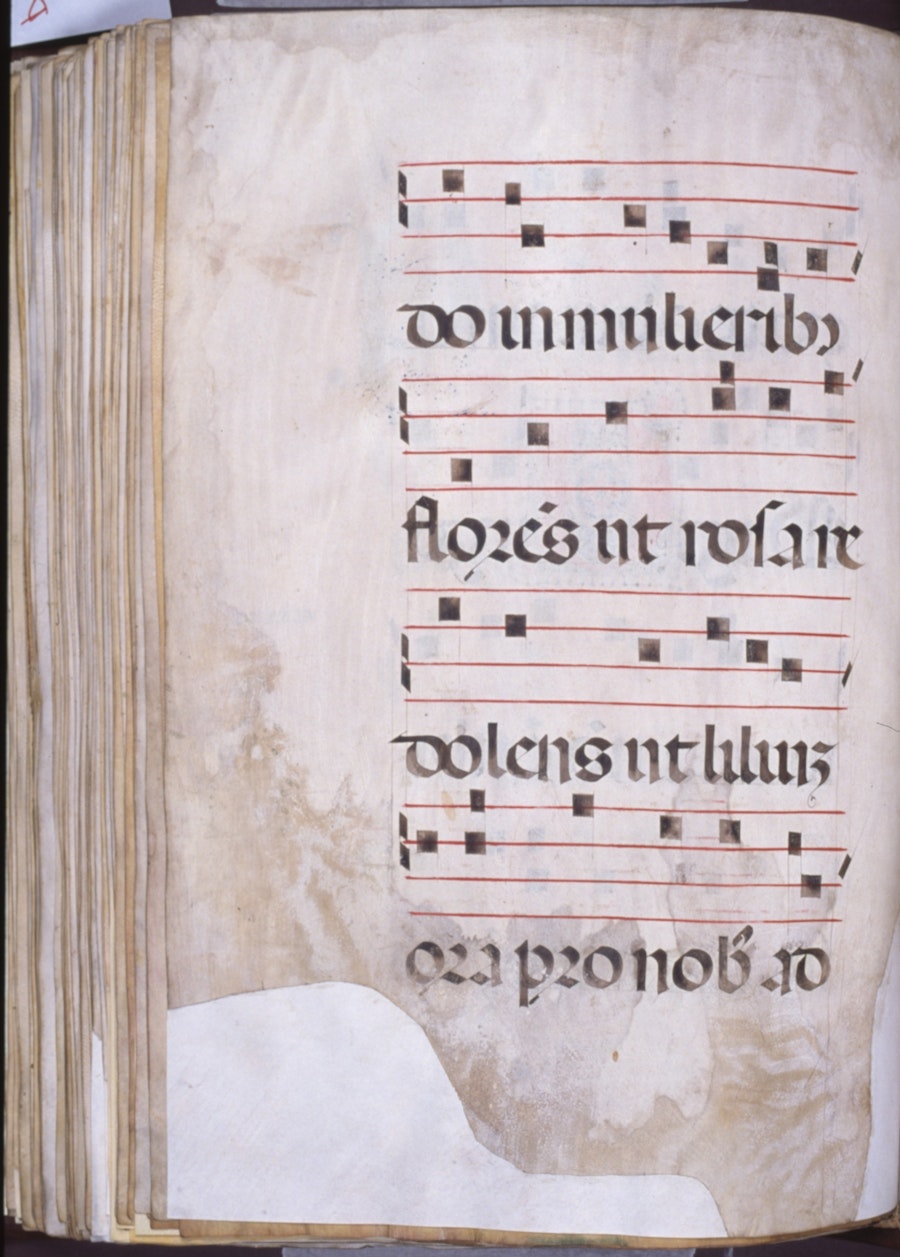 do in mulieribꝫ
flores ut rosa re
dolens ut liliuꝫ
ora pro nob̕ ad